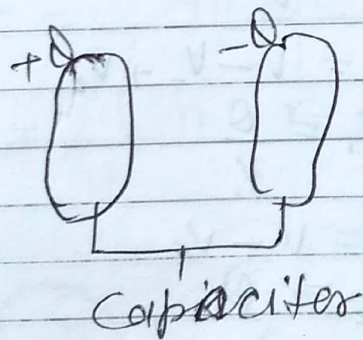 +Q -Q
Capacitor